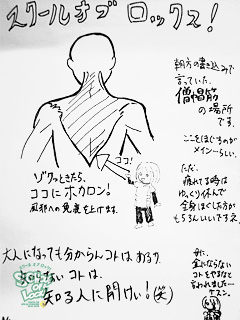 スクールオブ ロックス!
朝方の書き込みで
言っていた、
僧帽筋
の場所
です。
ここをほぐすのが
メインーらしい。
ただ
疲れてる時は
ゆっくり休んで
全身ほぐした方が
もちろんいいですネ。
ココ!
ゾクッときたら、
ココにホカロン!
風邪への免疫を上げます。
大人になっても分からんコトは、あるワ
知らないコトは、
知る人に聞けい!(笑)